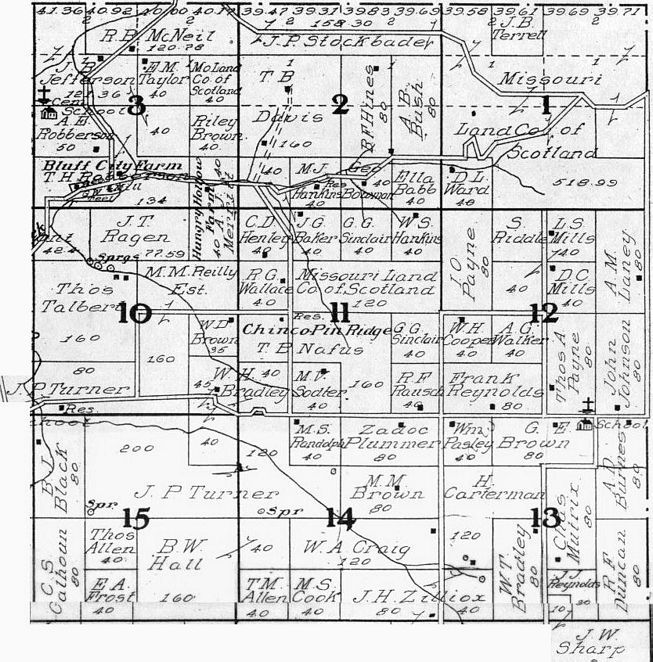 41.36 40.92 40.60 40.77 39.47 39.37 39.83 39.69 39.58 39.61 39.69 39.71
2 2 158.30 2 2
R.B. McNeil
120.78
J.P. Stockbader
J.B.
Terrell
J.B.
Jefferson
121.36
E.M.
Taylor
40
Mo Land
Co. of
Scotland
40
T B
Davis
160
R.F Hines
80
A B
Bush
80
Missouri
Land Co. of
Scotland
518.99
School
3
2
1
A E
Robberson
50
40
Riley
Brown
40
Bluff City Farm
T.H.
134
Hungry Hollow
Farm
40
M.J.
Hankins
40
Geo
Bowman
40
Res.
Ella
Babb
40
D.L.
Ward
40
J.T.
Ragen
77.59
Sprgs
42.4
C.D.
Henley
40
J.G.
Baker
40
G.G.
Sinclair
40
W.S.
Hankins
40
J O
Payne
80
S.
Riddle
40
L.S.
Mills
40
A.M.
Laney
80
Thos
Talbert
160
M.M. Reilly
Est.
160
R G.
Wallace
40
Missouri Land
Co. of Scotland
120
D.C.
Mills
40
10
11
12
W D
Brown
35
Res.
Chinco Pin Ridge
T B Nafus
160
G.G.
Sinclair
40
W.H.
Cooper
40
A G
Walker
40
Thos A
Payne
80
John
Johnson
80
80
J.P Turner
Res.
45
W.H.
Bradley
M.V.
Sodter
40
R F
Rausch
40
Frank
Reynolds
80
B L
Black
80
200
40
120
M.S.
Randolph
40
Zadoc
Plummer
80
Wm.
Pasley
40
G.
Brown
80
E.
School
A D
Barnes
80
J.P Turner
Spr
Spr
M.M.
Brown
80
H.
Carterman
120
Chas
Mullnix
80
15
14
13
C.S.
Calhoun
80
Thos
Allen
40
B.W.
Hall
160
40
W.A Craig
120
W.T.
Bradley
80
R F
Duncan
80
E A.
Frost
40
T.M.
Allen
40
M.S.
Cook
40
J.H. Zilliox
80
Reynolds
10
J.W.
Sharp